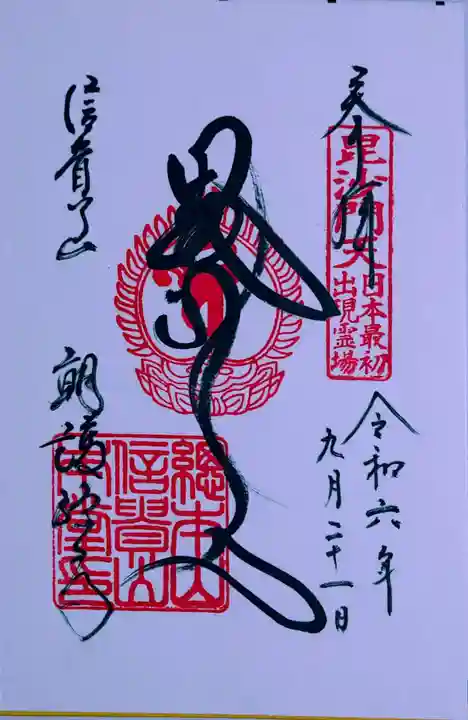 奉拝
毘沙門天 日本最初
出現霊場
令和六年
九月二十一日
毘
信貴山
朝護孫子寺
總本山
信貴山